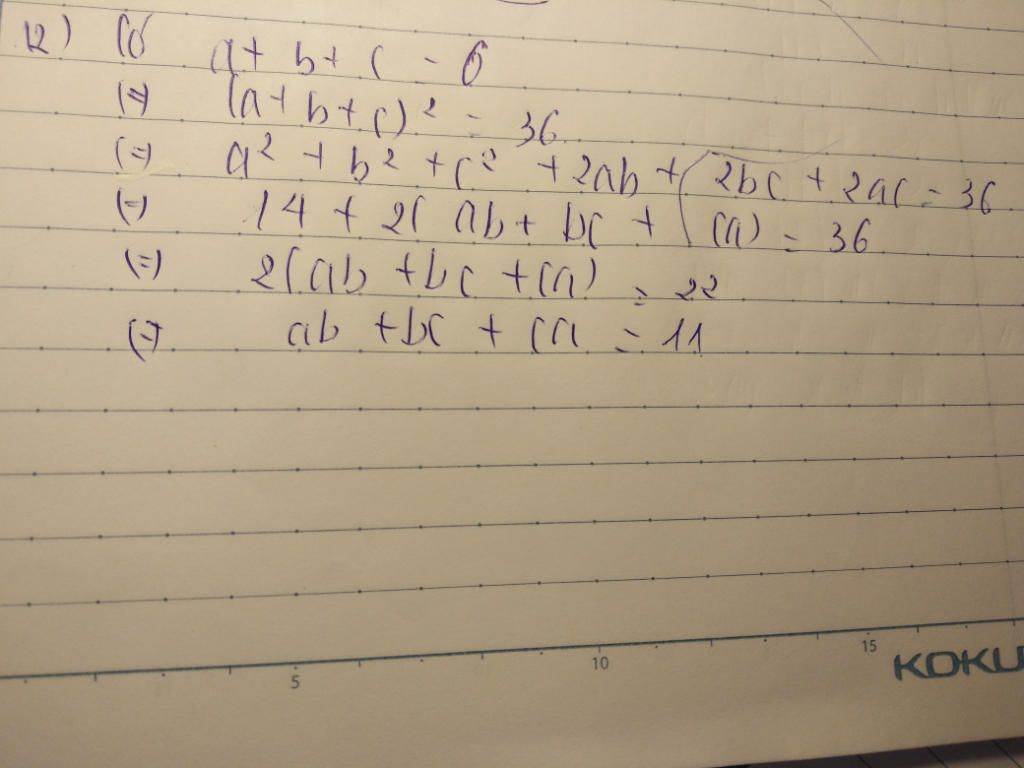 12) Có a + b + c = 6
(=) (a + b + c)² = 36
(=) a² + b² + c² + 2ab + 2bc + 2ac = 36
(=) 14 + 2( ab + bc + ca) = 36
(=) 2(ab + bc + ca) = 22
(=) ab + bc + ca = 11
5 10 15 KOKU